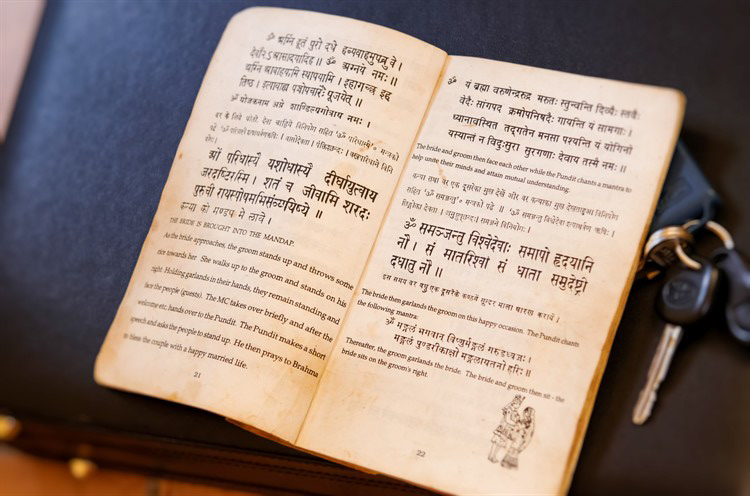 ॐ अग्निं दूतं पुरो दधे हव्यवाहमुपब्रुवे ।
देवाँ२ऽ आसादयादिह ॥ ॐ अग्नये नमः ॥
अग्निं आवाहयामि स्थापयामि । इहागच्छ इह
तिष्ठ । इत्यावाह्य पंचोपचारैः पूजयेत् ॥
ॐ योजकनाम अग्ने शाण्डिल्यगोत्राय नमः ।
वर के लिये धोती देना चाहिये विनियोग सहित
ॐ परिधास्यै यशोधास्यै दीर्घायुत्वाय
जरदष्टिरस्मि । शतं च जीवामि शरदः
पुरुची रायस्पोषमभिसंव्ययिष्ये ॥
कन्या को माण्डप में लावे ।
THE BRIDE IS BROUGHT INTO THE MANDAP.
As the bride approaches, the groom stands up and throws some
rice towards her. She walks up to the groom and stands on his
right. Holding garlands in their hands, they remain standing and
face the people (guests). The MC takes over briefly and after the
welcome etc, hands over to the Pundit. The Pundit makes a short
speech and asks the people to stand up. He then prays to Brahma
to bless the couple with a happy married life.
21
ॐ यं ब्रह्मा वरुणेन्द्ररुद्र मरुतः स्तुन्वन्ति दिव्यैः स्तवैः
वेदैः सांगपद क्रमोपनिषदैः गायन्ति यं सामगाः ।
ध्यानावस्थित तद्‌गतेन मनसा पश्यन्ति यं योगिनो
यस्यान्तं न विदुःसुरा सुरगणाः देवाय तस्मै नमः ॥
The bride and groom then face each other while the Pundit chants a mantra to
help unite their minds and attain mutual understanding.
कन्या तथा वर एक दूसरेका मुख देखें और वर कन्याका मुख देखता
सहित "ॐ समञ्जन्तु" मन्त्रको पढे ॥
ॐ समञ्जन्तु विश्वेदेवाः समापो हृदयानि
नौ । सं मातरिश्वा सं धाता समुदेष्ट्री
दधातु नौ ॥
इस समय वर वधु एक दूसरेके कण्ठमें सुन्दर माला धारण करावें ।
The bride then garlands the groom on this happy occasion. The Pundit chants
the following mantra:
ॐ मङ्गलं भगवान विष्णुर्मङ्गलं गरुडध्वजः ।
मङ्गलं पुण्डरीकाक्षो मङ्गलायतनो हरिः ॥
Thereafter, the groom garlands the bride. The bride and groom then sit - the
bride sits on the groom's right.
22